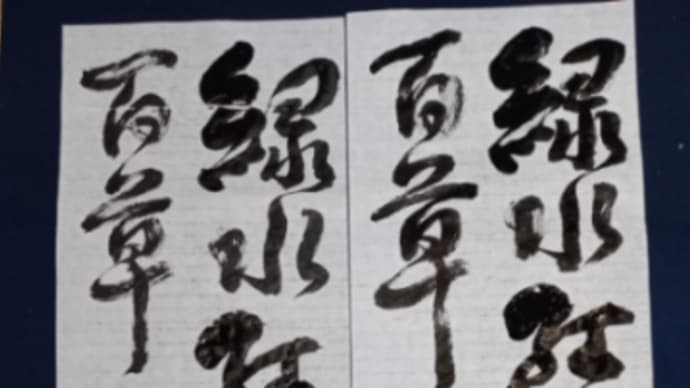 緑水
百草
緑水
百草